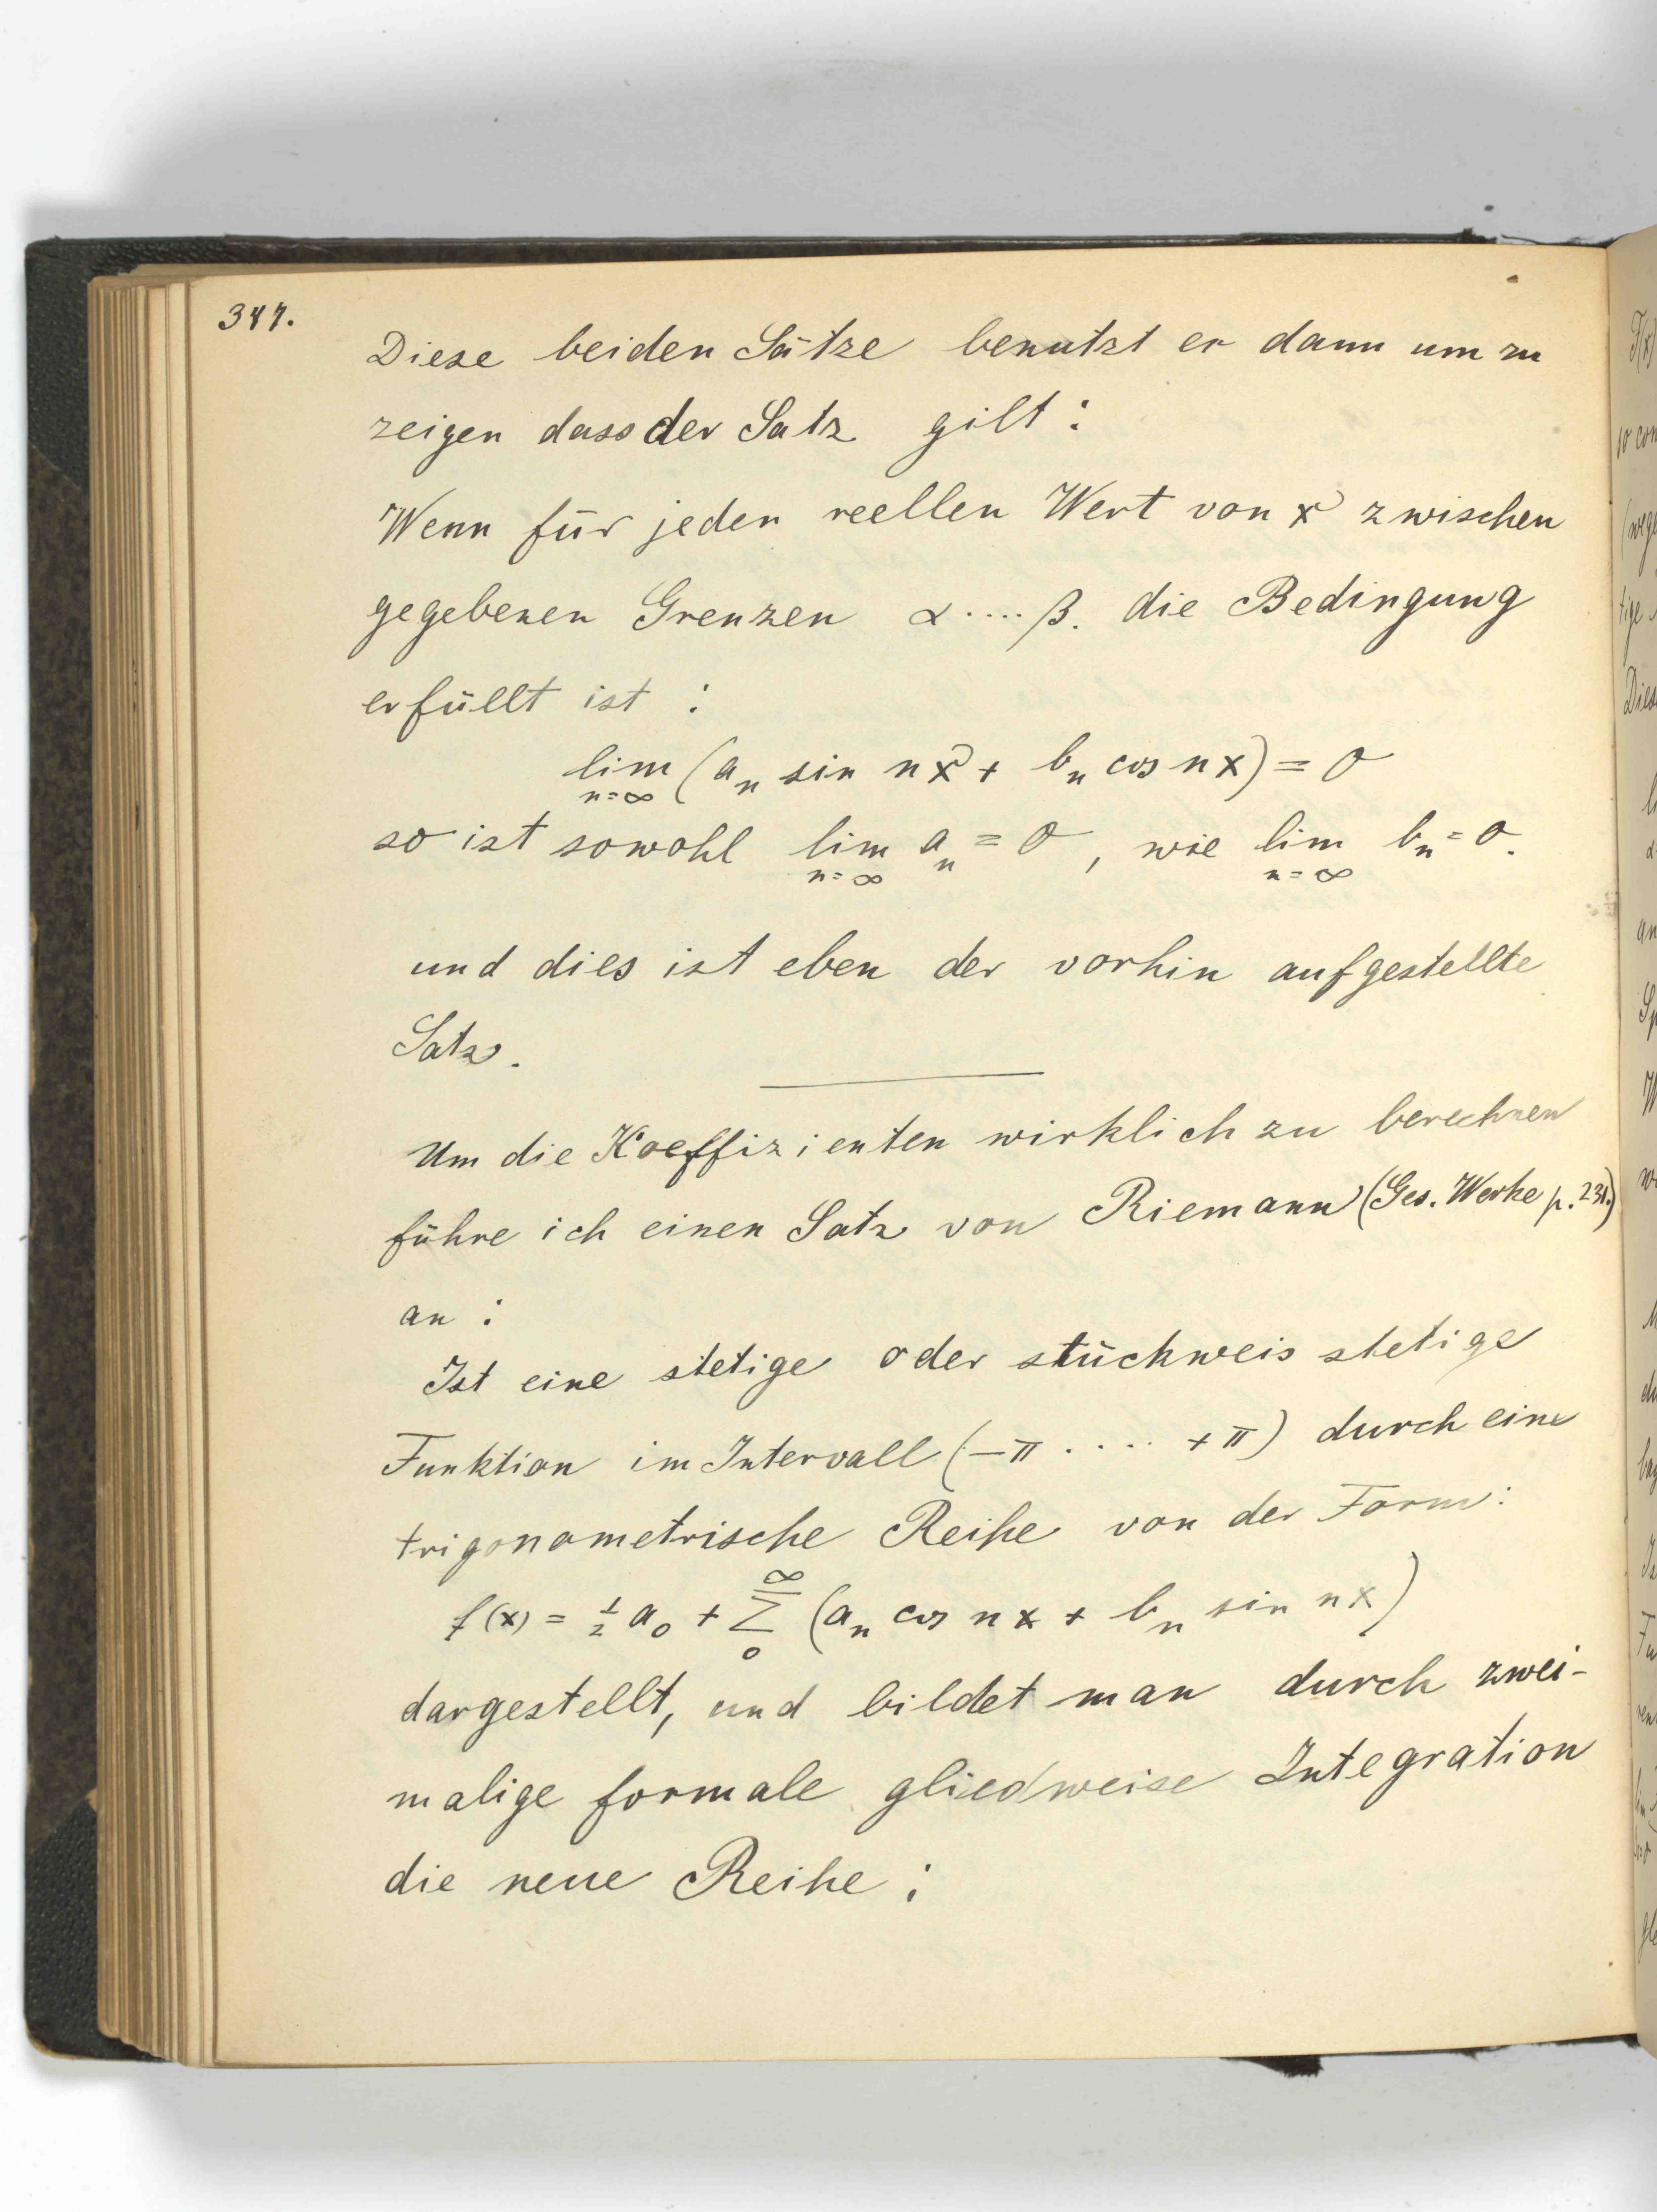 347.
Diese beiden Sätze benutzt er dann um zu
zeigen dass der Satz gilt :
Wenn für jeden reellen Wert von x zwischen
gegebenen Grenzen α .... β. die Bedingung
erfüllt ist :
lim (aₙ sin nx + bₙ cos nx) = 0
n=∞
so ist sowohl lim aₙ = 0 , wie lim bₙ = 0.
n=∞ n=∞
und dies ist eben der vorhin aufgestellte
Satz.
Um die Koeffizienten wirklich zu berechnen
führe ich einen Satz von Riemann (Ges. Werke p. 231.)
an :
Ist eine stetige oder stückweis stetige
Funktion im Intervall (-π .... +π) durch eine
trigonometrische Reihe von der Form:
∞
f(x) = ½ a₀ + Σ (aₙ cos nx + bₙ sin nx)
0
dargestellt, und bildet man durch zwei-
malige formale gliedweise Integration
die neue Reihe :